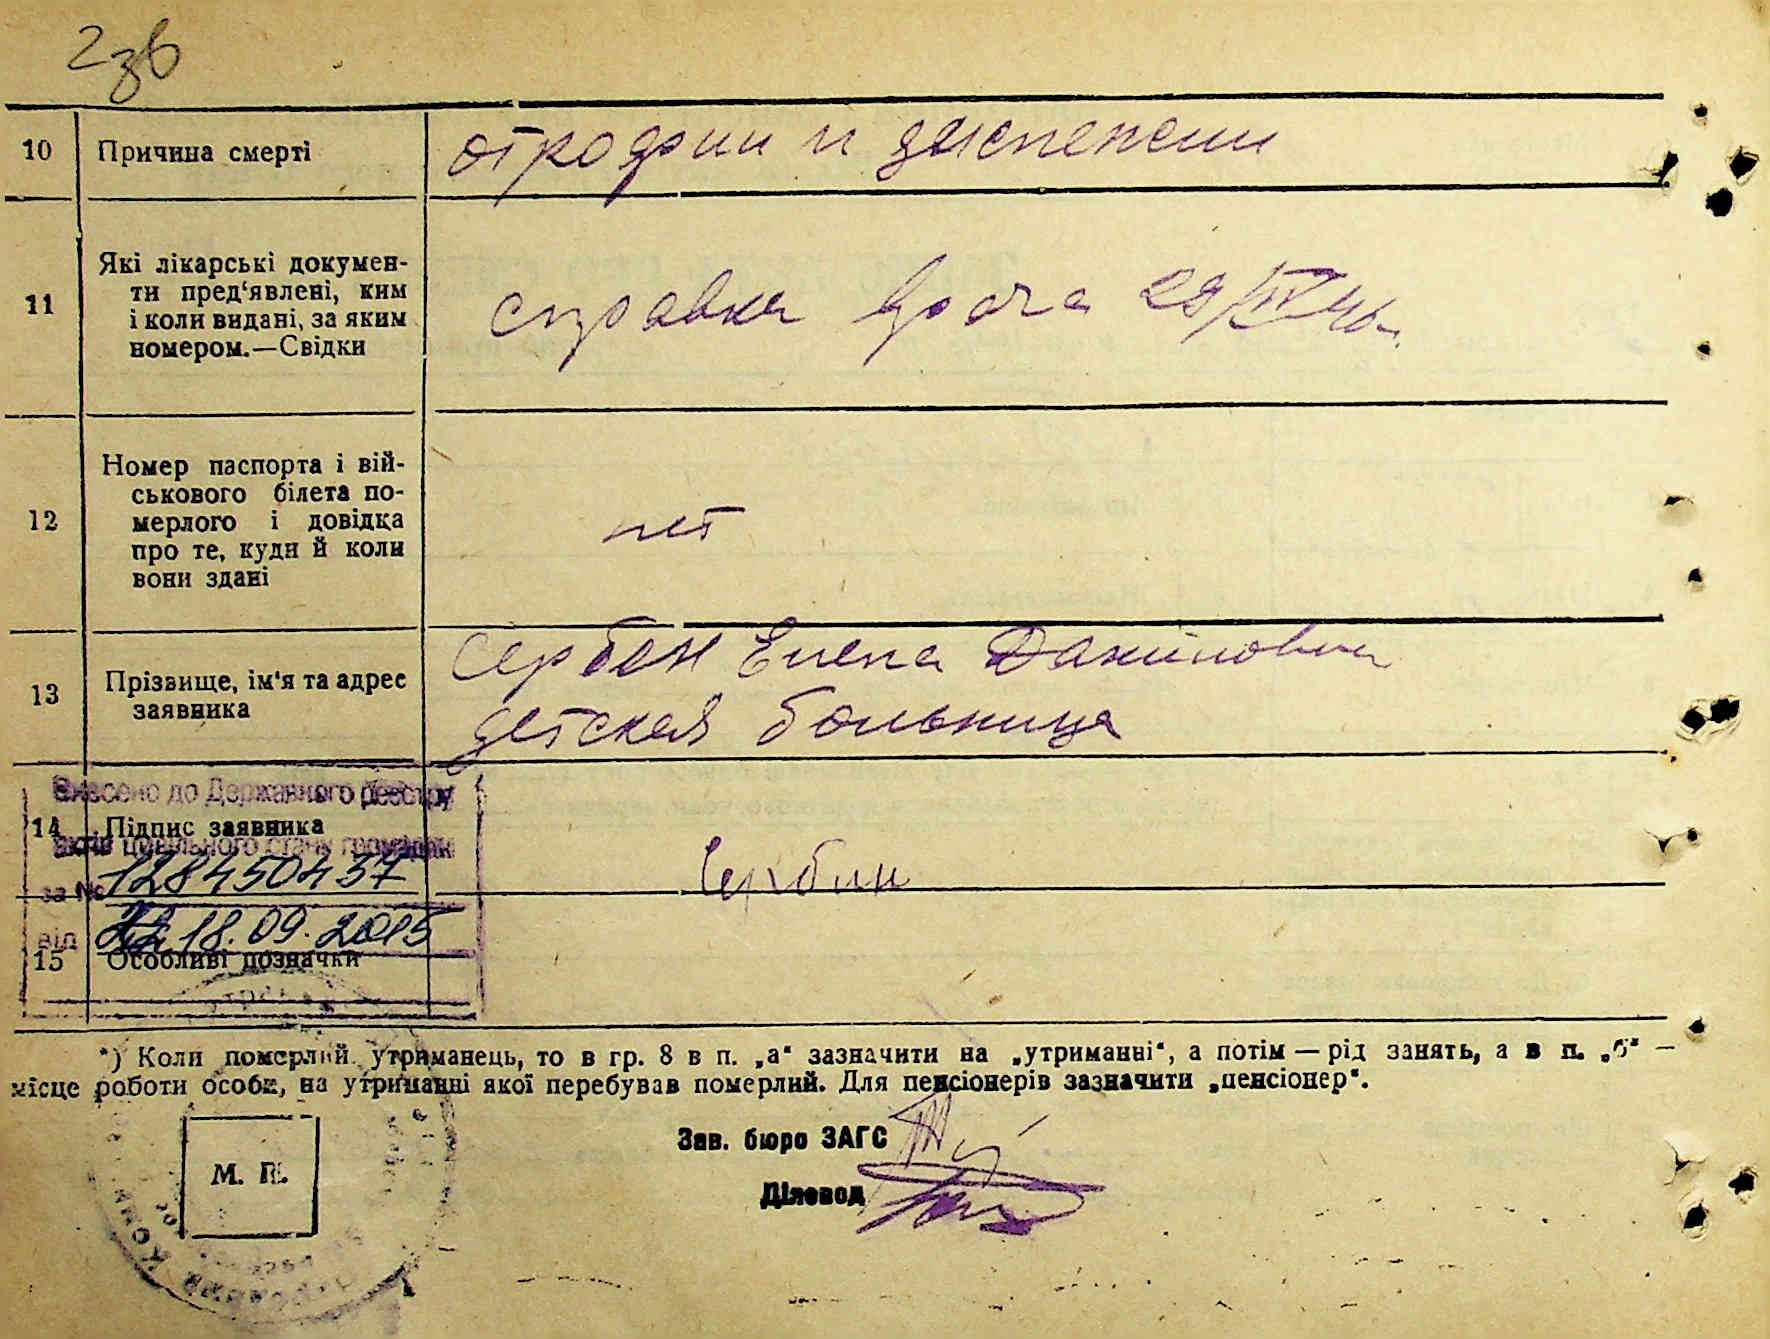 2зв
10 Причина смерті отрофии и диспепсии
11 Які лікарські докумен-
ти пред‘явлені, ким
і коли видані, за яким
номером.—Свідки
справка врача 29/IV 46г.
12 Номер паспорта і вій-
ськового білета по-
мерлого і довідка
про те, куди й коли
вони здані
нет
13 Прізвище, ім‘я та адрес
заявника
Сербин Елена Даниловна
детская больница
Внесено до Державного реєстру
14 Підпис заявника
актів цивільного стану громадян
за № 128450437
Сербин
від 18.09.2015
15 Особливі позначки
*) Коли померлий утриманець, то в гр. 8 в п. „а“ зазначити на „утриманні“, а потім — рід занять, а в п. „б“ —
місце роботи особи, на утриманні якої перебував померлий. Для пенсіонерів зазначити „пенсіонер“.
Зав. бюро ЗАГС
М. П.
Діловод